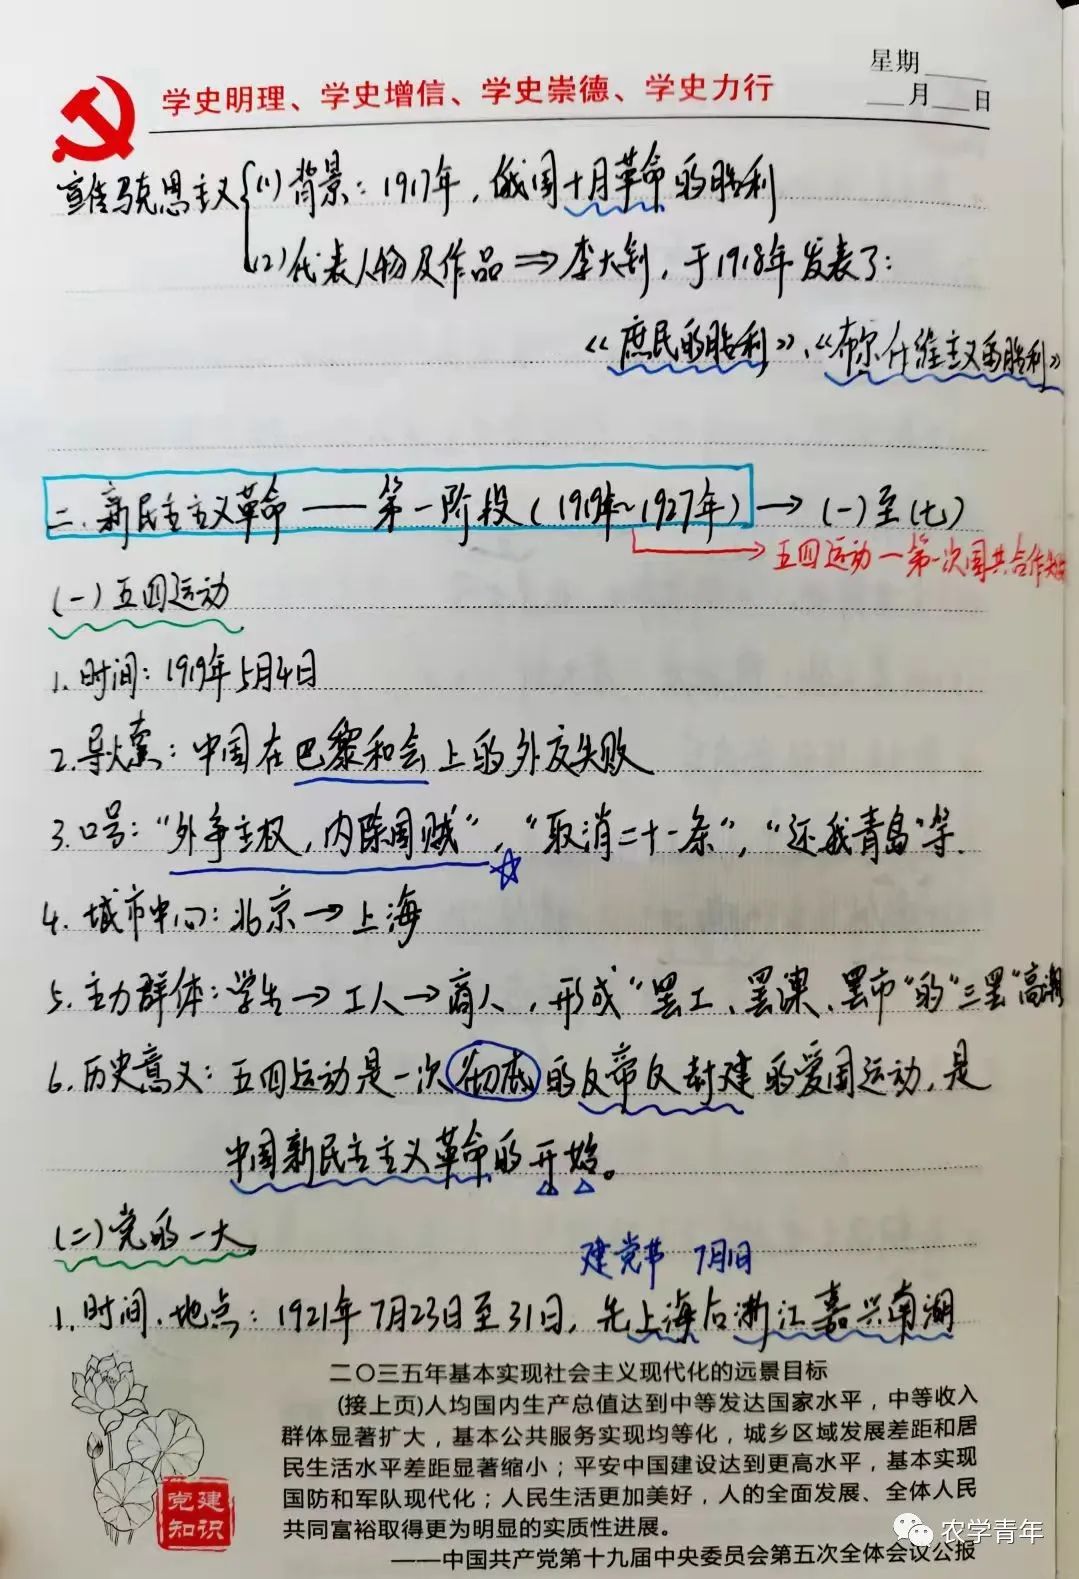 星期____
学史明理、学史增信、学史崇德、学史力行
__月__日
宣传马克思主义 (1)背景：1917年，俄国十月革命的胜利
(2)代表人物及作品⇒李大钊，于1918年发表了：
《庶民的胜利》、《布尔什维主义的胜利》
二.新民主主义革命——第一阶段(1919年~1927年)→(一)至(七)
→五四运动—第一次国共合作
(一)五四运动
1.时间：1919年5月4日
2.导火索：中国在巴黎和会上的外交失败
3.口号："外争主权，内除国贼"，"取消二十一条"，"还我青岛"等.
4.城市中心：北京→上海
5.主力群体：学生→工人→商人，形成"罢工、罢课、罢市"的"三罢"高潮
6.历史意义：五四运动是一次彻底的反帝反封建的爱国运动，是
中国新民主主义革命的开始。
(二)党的一大
建党节 7月1日
1.时间.地点：1921年7月23日至31日，先上海后浙江嘉兴南湖
二〇三五年基本实现社会主义现代化的远景目标
(接上页)人均国内生产总值达到中等发达国家水平，中等收入
群体显著扩大，基本公共服务实现均等化，城乡区域发展差距和居
民生活水平差距显著缩小；平安中国建设达到更高水平，基本实现
国防和军队现代化；人民生活更加美好，人的全面发展、全体人民
共同富裕取得更为明显的实质性进展。
——中国共产党第十九届中央委员会第五次全体会议公报
党建
知识
农学青年